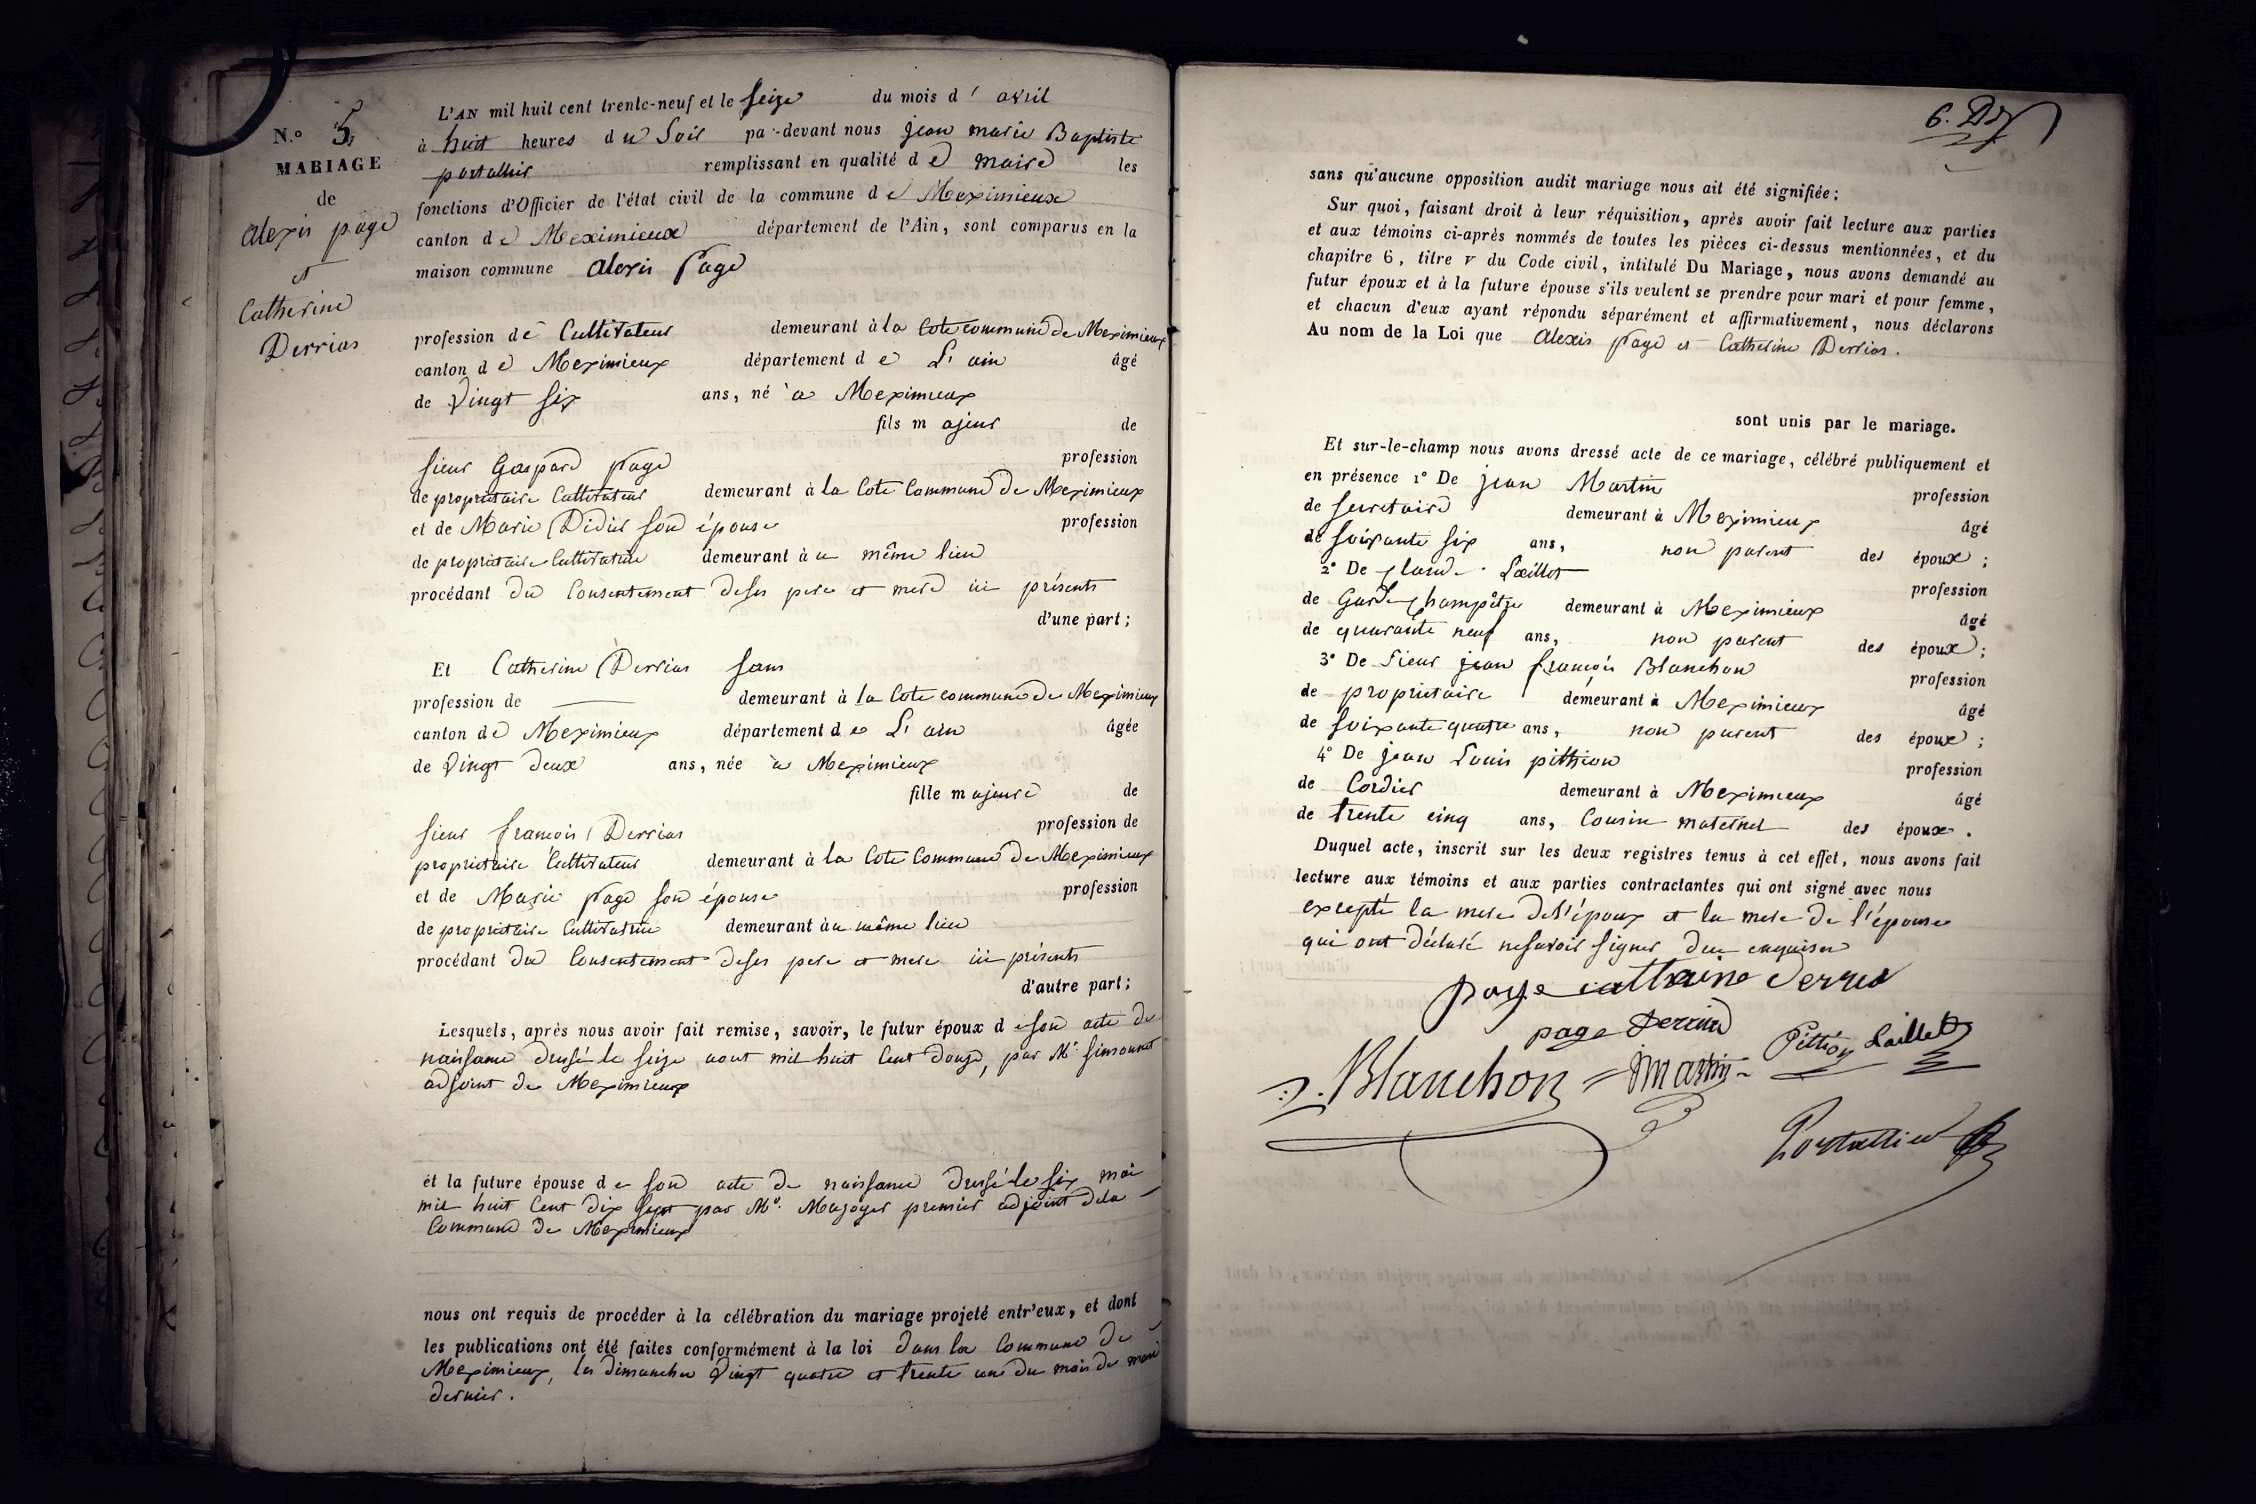 N.° 5
MARIAGE
de
alexis page
et
Catherine
Derrias
L'AN mil huit cent trente-neuf et le seize du mois d' avril
à huit heures du Soir pa-devant nous jean marie Baptiste
portallier remplissant en qualité de maire les
fonctions d'Officier de l'état civil de la commune de Meximieux
canton de Meximieux département de l'Ain, sont comparus en la
maison commune alexis Page
profession de Cultivateur demeurant à la Cote commune de Meximieux
canton de Meximieux département de L'ain âgé
de Vingt six ans, né à Meximieux
fils majeur de
sieur Gaspard page profession
de propriétaire Cultivateur demeurant à la Cote Commune de Meximieux
et de Marie Didier son épouse profession
de propriétaire Cultivatrice demeurant à u même lieu
procédant du Consentement de ses pere et mere ici présents
d'une part;
Et Catherine Derrias sans
profession de —— demeurant à la Cote commune de Meximieux
canton de Meximieux département de L'ain âgée
de Vingt deux ans, née à Meximieux
fille majeure de
sieur françois Derrias profession de
propriétaire Cultivateur demeurant à la Cote Commune de Meximieux
et de Marie page son épouse profession
de propriétaire Cultivatrice demeurant au même lieu
procédant du Consentement de ses pere et mere ici présents
d'autre part;
Lesquels, après nous avoir fait remise, savoir, le futur époux de son acte de
naissance dressé le seize aout mil huit Cent Douze, par Mr. Simonnet
adjoint de Meximieux
et la future épouse de son acte de naissance dressé le six mai
mil huit Cent dix sept par Mr. Magoyer premier adjoint de la
Commune de Meximieux
nous ont requis de procéder à la célébration du mariage projeté entr'eux, et dont
les publications ont été faites conformément à la loi dans la Commune de
Meximieux, les dimanches Vingt quatre et trente un du mois de mars
dernier.
sans qu'aucune opposition audit mariage nous ait été signifiée;
Sur quoi, faisant droit à leur réquisition, après avoir fait lecture aux parties
et aux témoins ci-après nommés de toutes les pièces ci-dessus mentionnées, et du
chapitre 6, titre v du Code civil, intitulé Du Mariage, nous avons demandé au
futur époux et à la future épouse s'ils veulent se prendre pour mari et pour femme,
et chacun d'eux ayant répondu séparément et affirmativement, nous déclarons
Au nom de la Loi que Alexis page et Catherine Derrias.
sont unis par le mariage.
Et sur-le-champ nous avons dressé acte de ce mariage, célébré publiquement et
en présence 1° De jean Martin profession
de secretaire demeurant à Meximieux âgé
de soixante six ans, non parent des époux;
2° De Laillet profession
de Garde Champêtre demeurant à Meximieux âgé
de quarante neuf ans, non parent des époux;
3° De Sieur jean françois Blanchon profession
de propriétaire demeurant à Meximieux âgé
de soixante quatre ans, non parent des époux;
4° De jean Louis pithion profession
de Cordier demeurant à Meximieux âgé
de trente cinq ans, Cousin maternel des époux.
Duquel acte, inscrit sur les deux registres tenus à cet effet, nous avons fait
lecture aux témoins et aux parties contractantes qui ont signé avec nous
excepté la mere de l'époux et la mere de l'épouse
qui ont déclaré ne savoir signer de ce enquises
page catherine Derrias
page Derrias
Blanchon Jmartin Pithion Laillet
Portallier